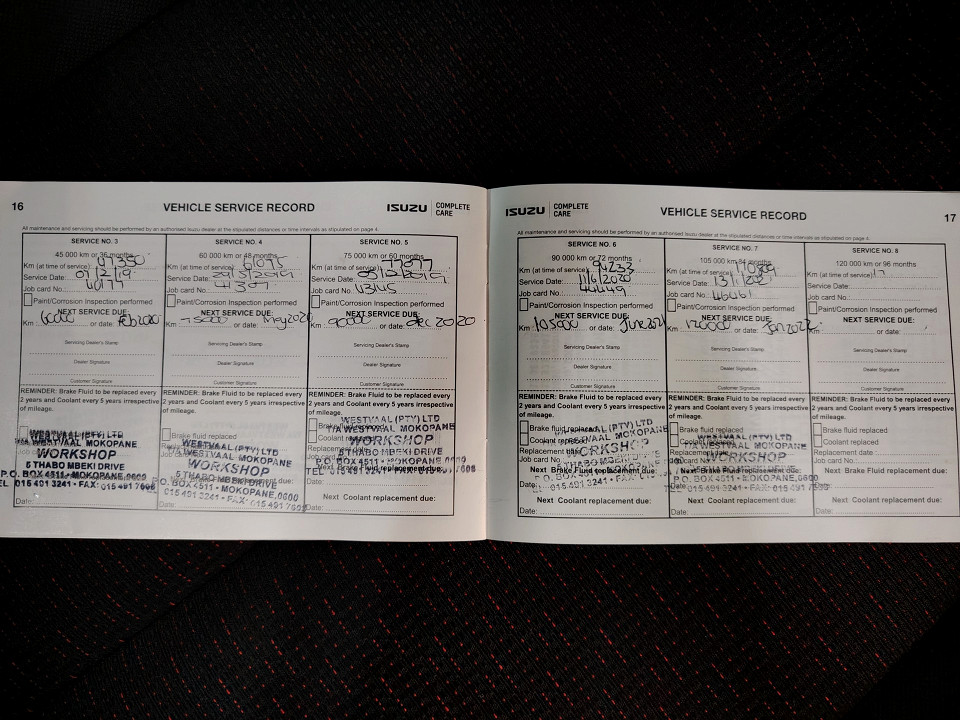 16
VEHICLE SERVICE RECORD
ISUZU COMPLETE CARE
All maintenance and servicing should be performed by an authorised Isuzu dealer at the stipulated distances or time intervals as stipulated on page 4.
SERVICE NO. 3
45 000 km or 36 months
Km (at time of service) 47350
Service Date:
Job card No.
Paint/Corrosion Inspection performed
NEXT SERVICE DUE:
Km 60000 or date: Feb 2020
Servicing Dealer's Stamp
Dealer Signature
Customer Signature
REMINDER: Brake Fluid to be replaced every
2 years and Coolant every 5 years irrespective
of mileage.
WESTVAAL (PTY) LTD
T/A WESTVAAL MOKOPANE
WORKSHOP
5 THABO MBEKI DRIVE
P.O. BOX 4511 • MOKOPANE, 0600
TEL 015 491 3241 • FAX: 015 491 7606
Date:
SERVICE NO. 4
60 000 km or 48 months
Km (at time of service)
Service Date:
Job card No. 41307
Paint/Corrosion Inspection performed
NEXT SERVICE DUE:
Km 75000 or date: May 2020
Servicing Dealer's Stamp
Dealer Signature
Customer Signature
REMINDER: Brake Fluid to be replaced every
2 years and Coolant every 5 years irrespective
of mileage.
Brake fluid replaced
WESTVAAL (PTY) LTD
T/A WESTVAAL MOKOPANE
WORKSHOP
5 THABO MBEKI DRIVE
P.O. BOX 4511 • MOKOPANE, 0600
015 491 3241 • FAX: 015 491 7606
Date:
SERVICE NO. 5
75 000 km or 60 months
Km (at time of service) 77077
Service Date:
Job card No. 43145
Paint/Corrosion Inspection performed
NEXT SERVICE DUE:
Km 90000 or date: dec 2020
Servicing Dealer's Stamp
Dealer Signature
Customer Signature
REMINDER: Brake Fluid to be replaced every
2 years and Coolant every 5 years irrespective
of mileage.
WESTVAAL (PTY) LTD
T/A WESTVAAL MOKOPANE
WORKSHOP
5 THABO MBEKI DRIVE
Next Brake Fluid replacement due:
Date:
Next Coolant replacement due:
Date:
ISUZU COMPLETE CARE
VEHICLE SERVICE RECORD
17
All maintenance and servicing should be performed by an authorised Isuzu dealer at the stipulated distances or time intervals as stipulated on page 4.
SERVICE NO. 6
90 000 km or 72 months
Km (at time of service)
Service Date: 11/6/2020
Job card No. 44449
Paint/Corrosion Inspection performed
NEXT SERVICE DUE:
Km 105000 or date: June 2021
Servicing Dealer's Stamp
Dealer Signature
Customer Signature
REMINDER: Brake Fluid to be replaced every
2 years and Coolant every 5 years irrespective
of mileage.
Brake fluid replaced
Coolant replaced
WESTVAAL (PTY) LTD
T/A WESTVAAL MOKOPANE
Replacement date
Next Brake Fluid replacement due:
P.O. BOX 4511 • MOKOPANE, 0600
Date:
Next Coolant replacement due:
Date:
SERVICE NO. 7
105 000 km 84 months
Km (at time of service)
Service Date:
Job card No. 46461
Paint/Corrosion Inspection performed
NEXT SERVICE DUE:
Km 120000 or date: Jan 2022
Servicing Dealer's Stamp
Dealer Signature
Customer Signature
REMINDER: Brake Fluid to be replaced every
2 years and Coolant every 5 years irrespective
of mileage.
Brake fluid replaced
WESTVAAL (PTY) LTD
T/A WESTVAAL MOKOPANE
WORKSHOP
5 THABO MBEKI DRIVE
P.O. BOX 4511 • MOKOPANE, 0600
Date:
Next Coolant replacement due:
Date:
SERVICE NO. 8
120 000 km or 96 months
Km (at time of service)
Service Date:
Job card No.
Paint/Corrosion Inspection performed
NEXT SERVICE DUE:
Km or date:
Servicing Dealer's Stamp
Dealer Signature
Customer Signature
REMINDER: Brake Fluid to be replaced every
2 years and Coolant every 5 years irrespective
of mileage.
Brake fluid replaced
Coolant replaced
Replacement date
Job card No.
Next Brake Fluid replacement due:
Date:
Next Coolant replacement due:
Date: